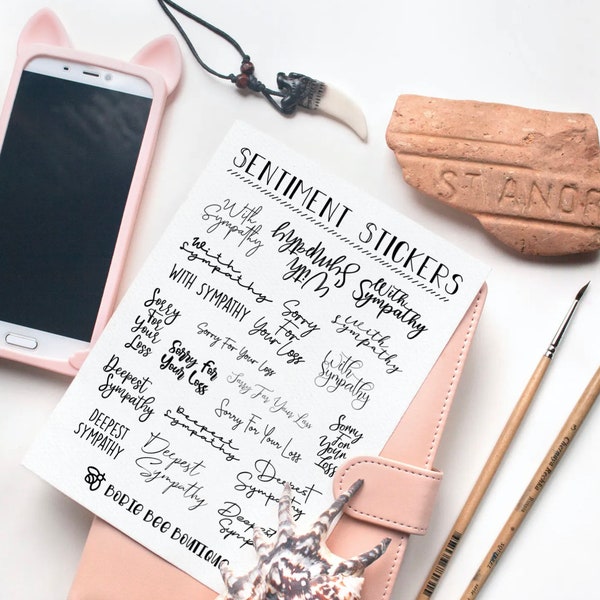 SENTIMENT STICKERS
With
Sympathy
With
Sympathy
With
Sympathy
With
Sympathy
WITH SYMPATHY
Sorry
For
Your Loss
With
Sympathy
With
Sympathy
Sorry
For
Your
Loss
Sorry For
Your Loss
Sorry For Your Loss
Sorry For Your Loss
Sorry For Your Loss
Sorry
For
Your
Loss
Deepest
Sympathy
Deepest
Sympathy
DEEPEST
SYMPATHY
Deepest
Sympathy
Deepest
Sympathy
Deepest
BORIE BEE
ST ANDR